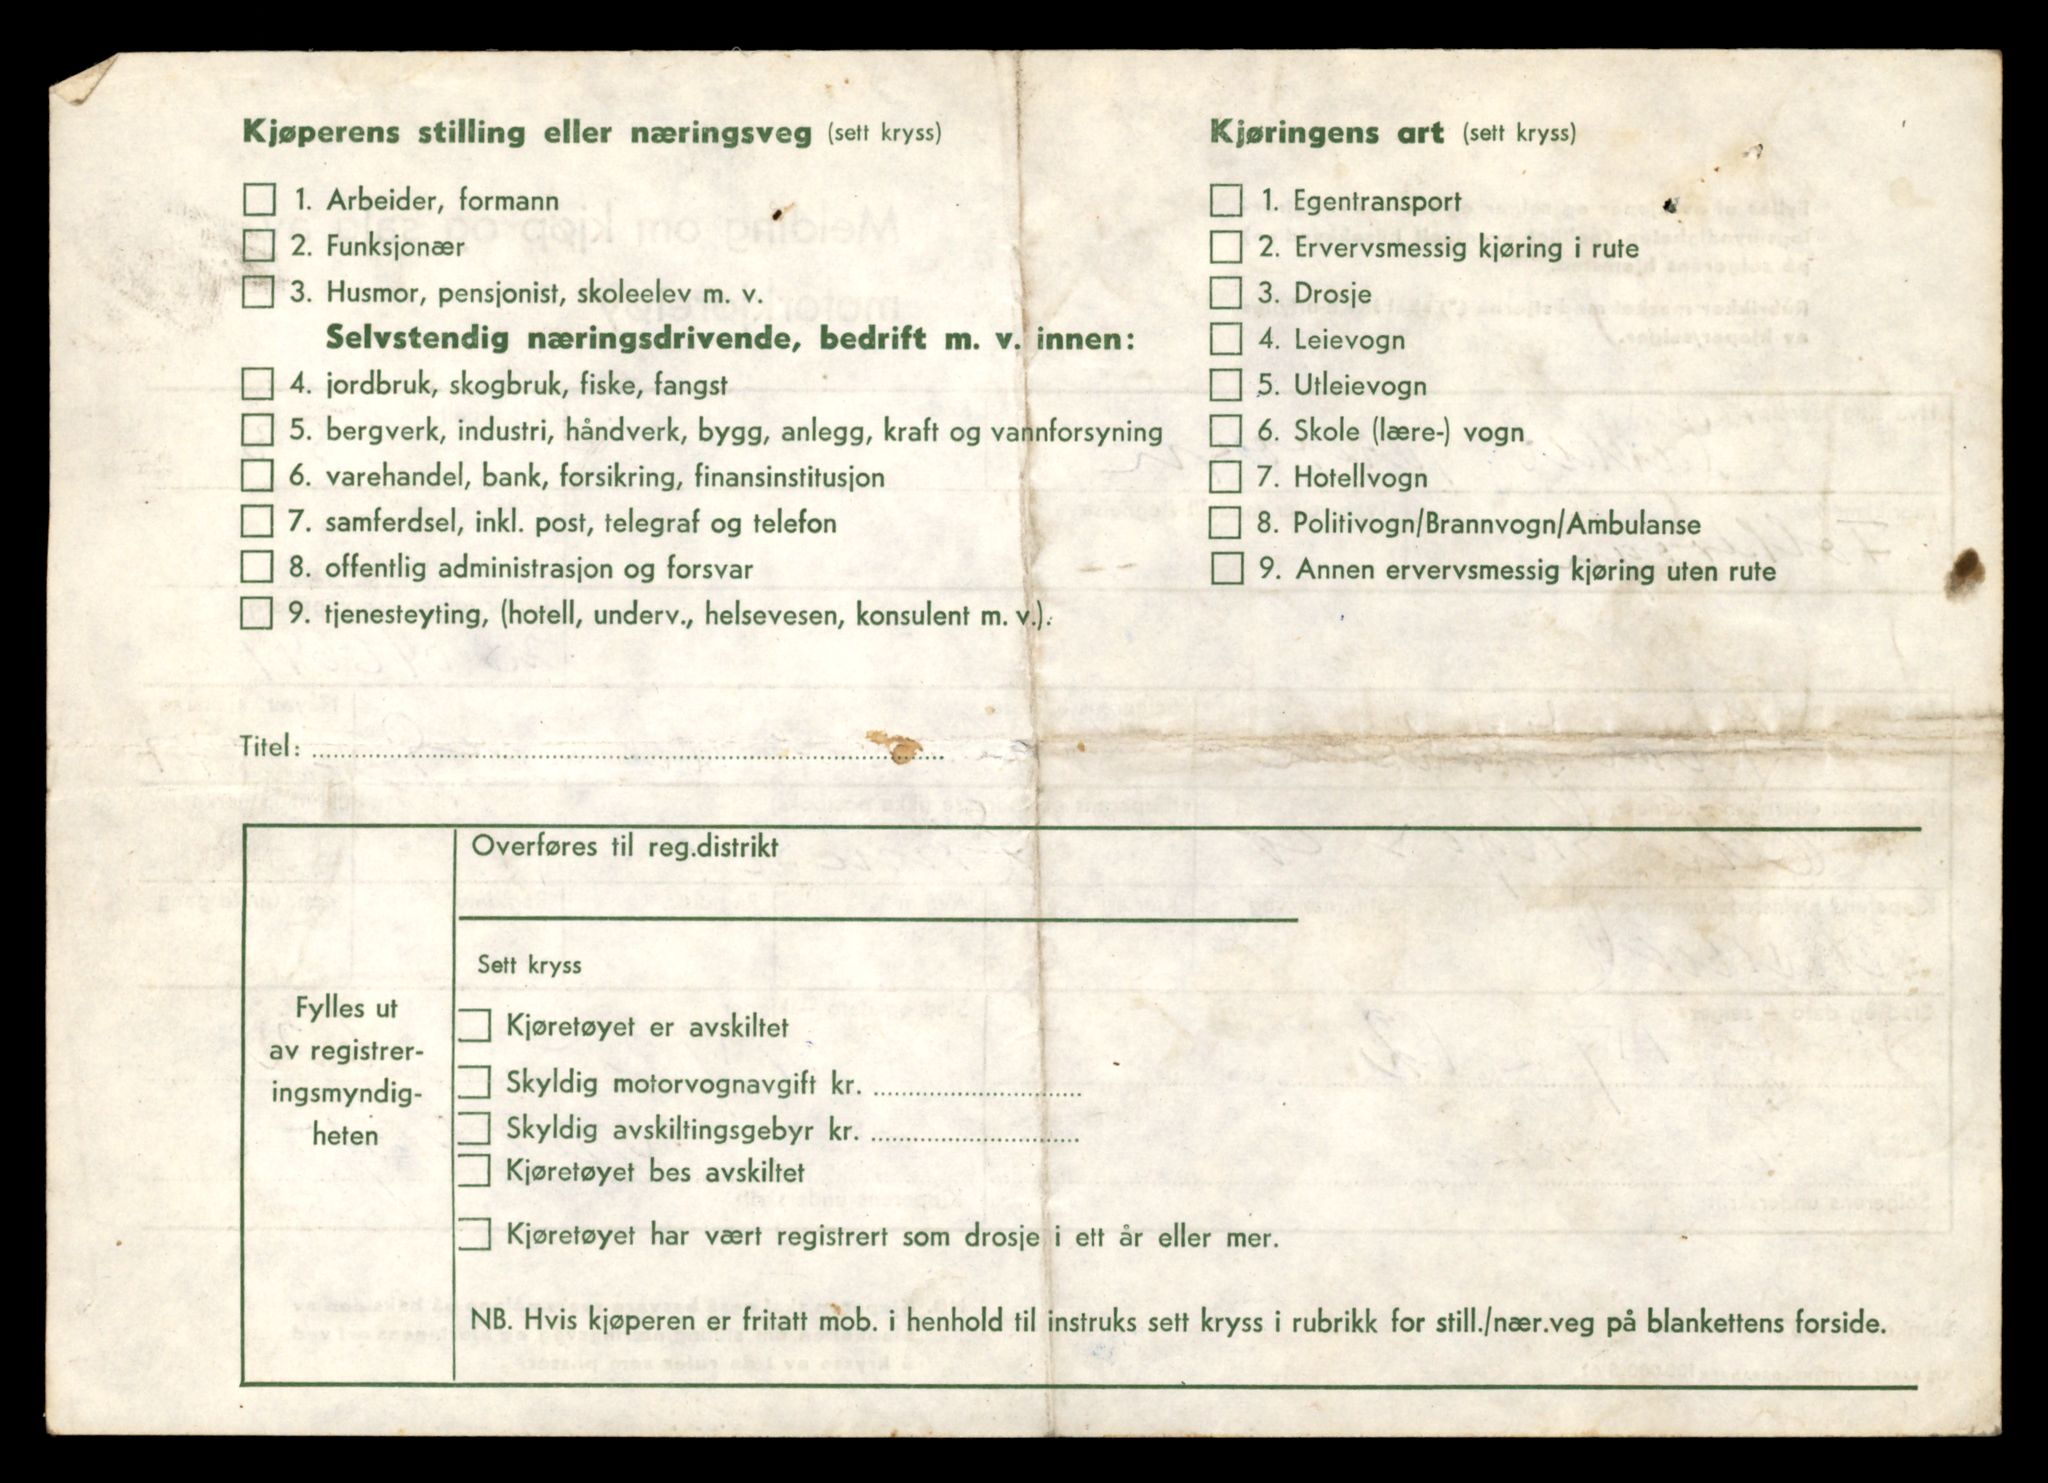 Kjøperens stilling eller næringsveg (sett kryss)
1. Arbeider, formann
2. Funksjonær
3. Husmor, pensjonist, skoleelev m. v.
Selvstendig næringsdrivende, bedrift m. v. innen:
4. jordbruk, skogbruk, fiske, fangst
5. bergverk, industri, håndverk, bygg, anlegg, kraft og vannforsyning
6. varehandel, bank, forsikring, finansinstitusjon
7. samferdsel, inkl. post, telegraf og telefon
8. offentlig administrasjon og forsvar
9. tjenesteyting, (hotell, underv., helsevesen, konsulent m. v.).
Titel:
Kjøringens art (sett kryss)
1. Egentransport
2. Ervervsmessig kjøring i rute
3. Drosje
4. Leievogn
5. Utleievogn
6. Skole (lære-) vogn
7. Hotellvogn
8. Politivogn/Brannvogn/Ambulanse
9. Annen ervervsmessig kjøring uten rute
Fylles ut
av registrer-
ingsmyndig-
heten
Overføres til reg.distrikt
Sett kryss
Kjøretøyet er avskiltet
Skyldig motorvognavgift kr.
Skyldig avskiltingsgebyr kr.
Kjøretøyet bes avskiltet
Kjøretøyet har vært registrert som drosje i ett år eller mer.
NB. Hvis kjøperen er fritatt mob. i henhold til instruks sett kryss i rubrikk for still./nær.veg på blankettens forside.